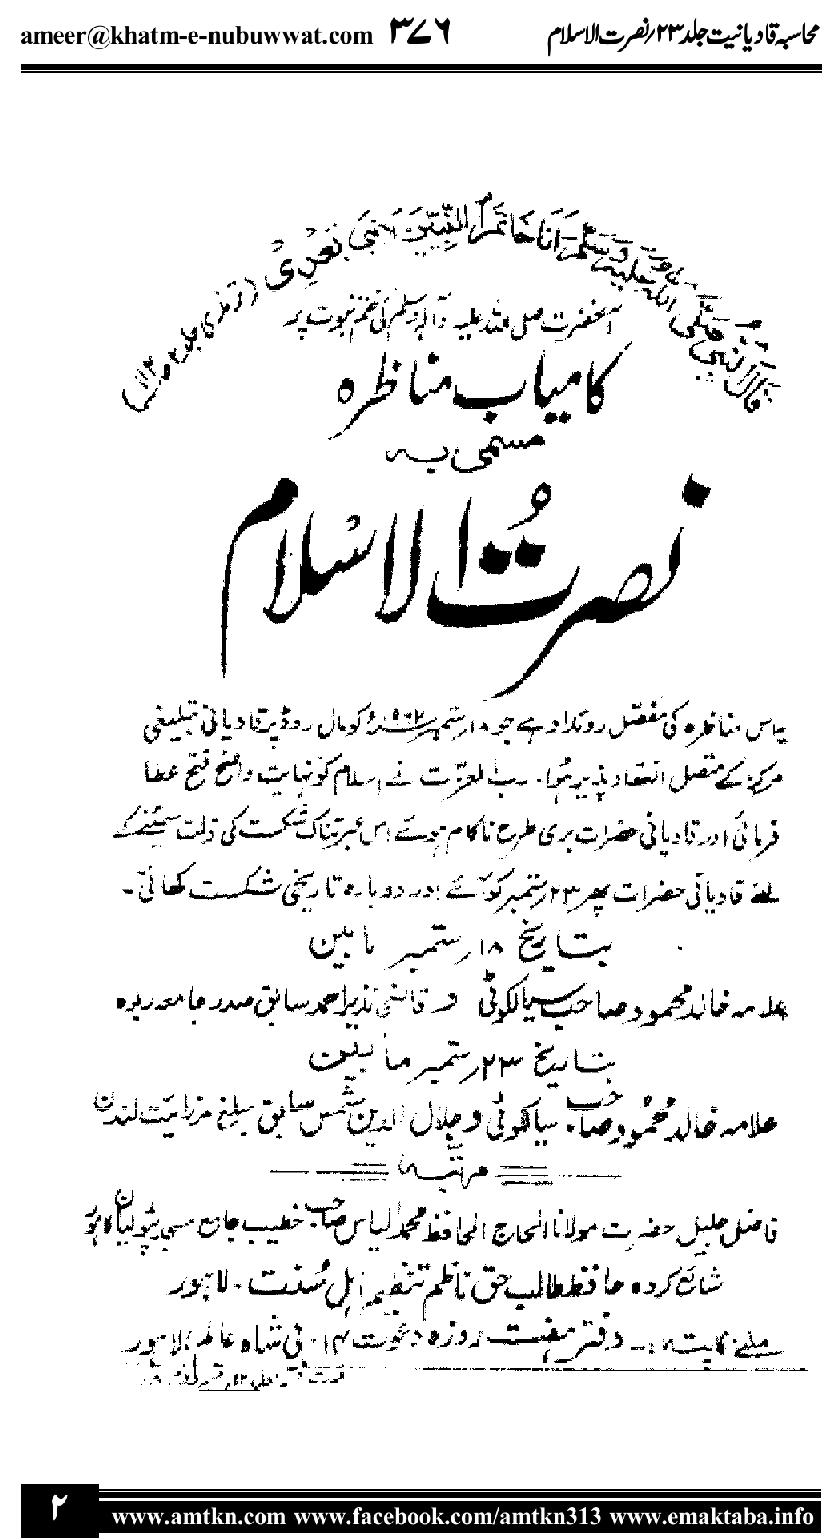 محاسبہ قادیانیت جلد ۲۳ / نصرت الاسلام ۳۷۶ ameer@khatm-e-nubuwwat.com
قَالَ النَّبِیُّ صَلَّی اللہُ عَلَیْہِ وَسَلَّمَ اَنَا خَاتَمُ النَّبِیِّیْنَ لَا نَبِیَّ بَعْدِیْ (ترمذی جلد ۲
آنحضرت صلی اللہ علیہ وآلہ وسلم کی ختم نبوت پر
کامیاب مناظرہ
مسمی بہ
نصرتُ الاسلام
یہ اس مناظرہ کی مفصل روئداد ہے جو ۱۸ ستمبر کو مال روڈ پر قادیانی تبلیغی
مرکز کے متصل انعقاد پذیر ہوا۔ رب العزت نے اسلام کو نہایت واضح فتح عطا
فرمائی اور قادیانی حضرات بری طرح ناکام ہوئے اس عبرتناک شکست کی ذلت سمیٹنے کے
لئے قادیانی حضرات پھر ۲۳ ستمبر کو آئے اور دوبارہ تاریخی شکست کھائی۔
بتاریخ ۱۸ ستمبر مابین
علامہ خالد محمود صاحب سیالکوٹی و قاضی نذیر احمد سابق صدر جامعہ ربوہ
بتاریخ ۲۳ ستمبر مابین
علامہ خالد محمود صاحب سیالکوٹی و جلال الدین شمس سابق مبلغ مرزائیت لندن
مرتبہ
فاضل جلیل حضرت مولانا الحاج الحافظ محمد الیاس صاحب خطیب جامع مسجد پٹولیاں لاہور
شائع کردہ حافظ طالب حق ناظم تنظیم اہل سُنت۔ لاہور
ملنے کا پتہ :۔ دفتر ہفت روزہ دعوت ۱۴۔ بی شاہ عالم لاہور
۲ www.amtkn.com www.facebook.com/amtkn313 www.emaktaba.info